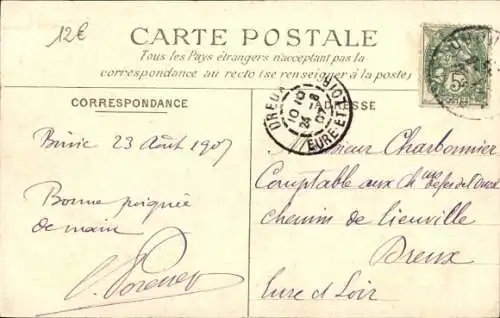 12€
CARTE POSTALE
Tous les Pays étrangers n'acceptant pas la
correspondance au recto (se renseigner à la poste)
CORRESPONDANCE
ADRESSE
DREUX
10 10
24 - 8
07
EURE ET LOIR
5c
Binic 23 Août 1907
Bonne poignée
de main
Monsieur Charbonnier
Comptable aux Ch ins de fer de l'Ouest
chemin de lieuville
Dreux
Eure et Loir